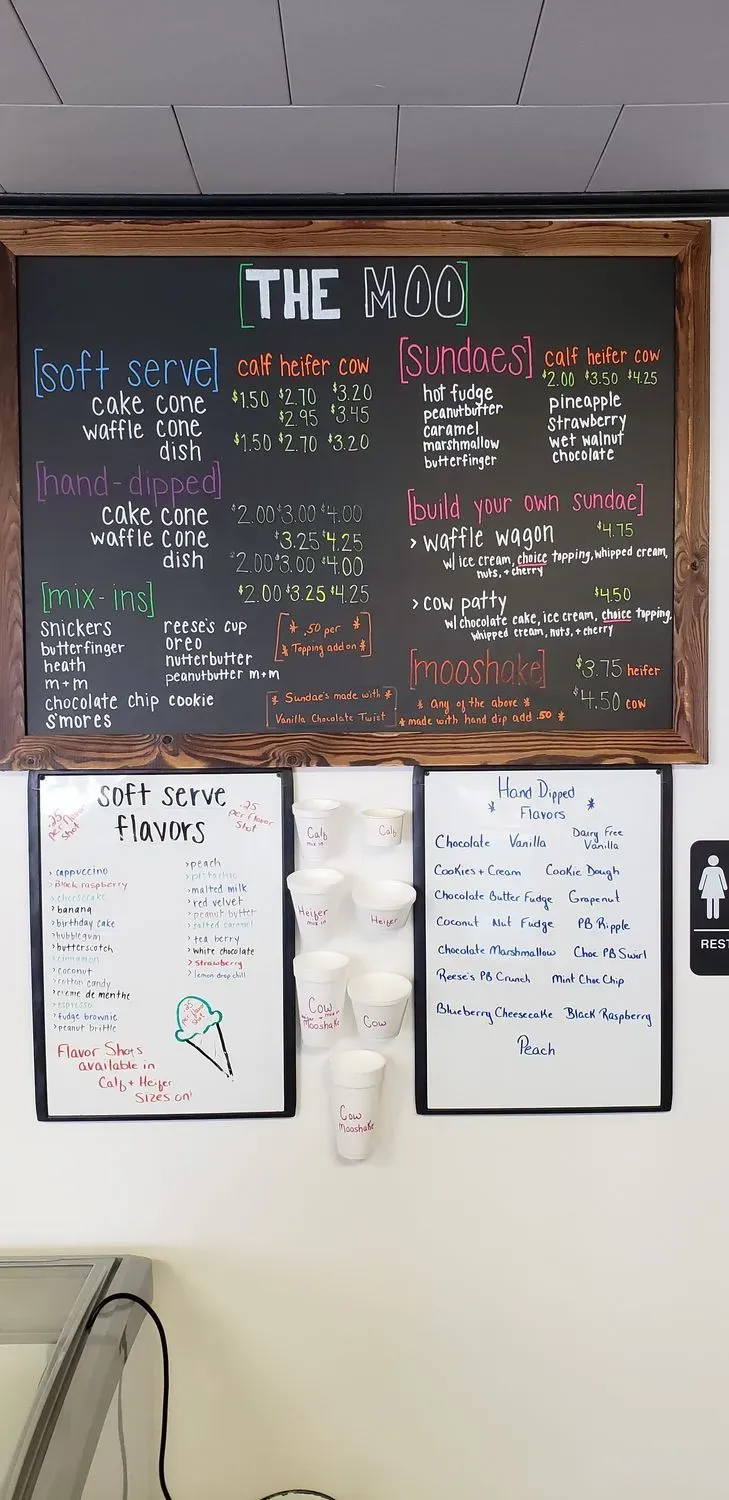 [THE MOO]
[soft serve] calf heifer cow
cake cone $1.50 $2.70 $3.20
waffle cone $2.95 $3.45
dish $1.50 $2.70 $3.20
[hand-dipped]
cake cone $2.00 $3.00 $4.00
waffle cone $3.25 $4.25
dish $2.00 $3.00 $4.00
[mix-ins] $2.00 $3.25 $4.25
snickers reese's cup
butterfinger oreo
heath nutterbutter
m+m peanutbutter m+m
chocolate chip cookie
s'mores
* .50 per *
* Topping add on *
* Sundae's made with *
Vanilla Chocolate Twist
[sundaes] calf heifer cow
$2.00 $3.50 $4.25
hot fudge pineapple
peanutbutter strawberry
caramel wet walnut
marshmallow chocolate
butterfinger
[build your own sundae]
> waffle wagon $4.75
w/ ice cream, choice topping, whipped cream,
nuts, + cherry
> cow patty $4.50
w/ chocolate cake, ice cream, choice topping,
whipped cream, nuts, + cherry
[mooshake] $3.75 heifer
$4.50 cow
* any of the above *
* made with hand dip add .50 *
soft serve
flavors
.25
per flavor
shot
.25
per flavor
shot
> cappuccino
> Black raspberry
> cheesecake
> banana
> birthday cake
> bubblegum
> butterscotch
> cinnamon
> coconut
> cotton candy
> creme de menthe
> espresso
> fudge brownie
> peanut brittle
> peach
> pistachio
> malted milk
> red velvet
> peanut butter
> salted caramel
> tea berry
> white chocolate
> strawberry
> lemon drop chill
Flavor Shots
available in
Calf + Heifer
Sizes on!
Calf
mix in
Calf
Heifer
mix in
Heifer
Cow
Mooshake
Cow
Cow
Mooshake
Hand Dipped
* Flavors *
Chocolate Vanilla Dairy Free
Vanilla
Cookies + Cream Cookie Dough
Chocolate Butter Fudge Grapenut
Coconut Nut Fudge PB Ripple
Chocolate Marshmallow Choc PB Swirl
Reese's PB Crunch Mint Choc Chip
Blueberry Cheesecake Black Raspberry
Peach
REST